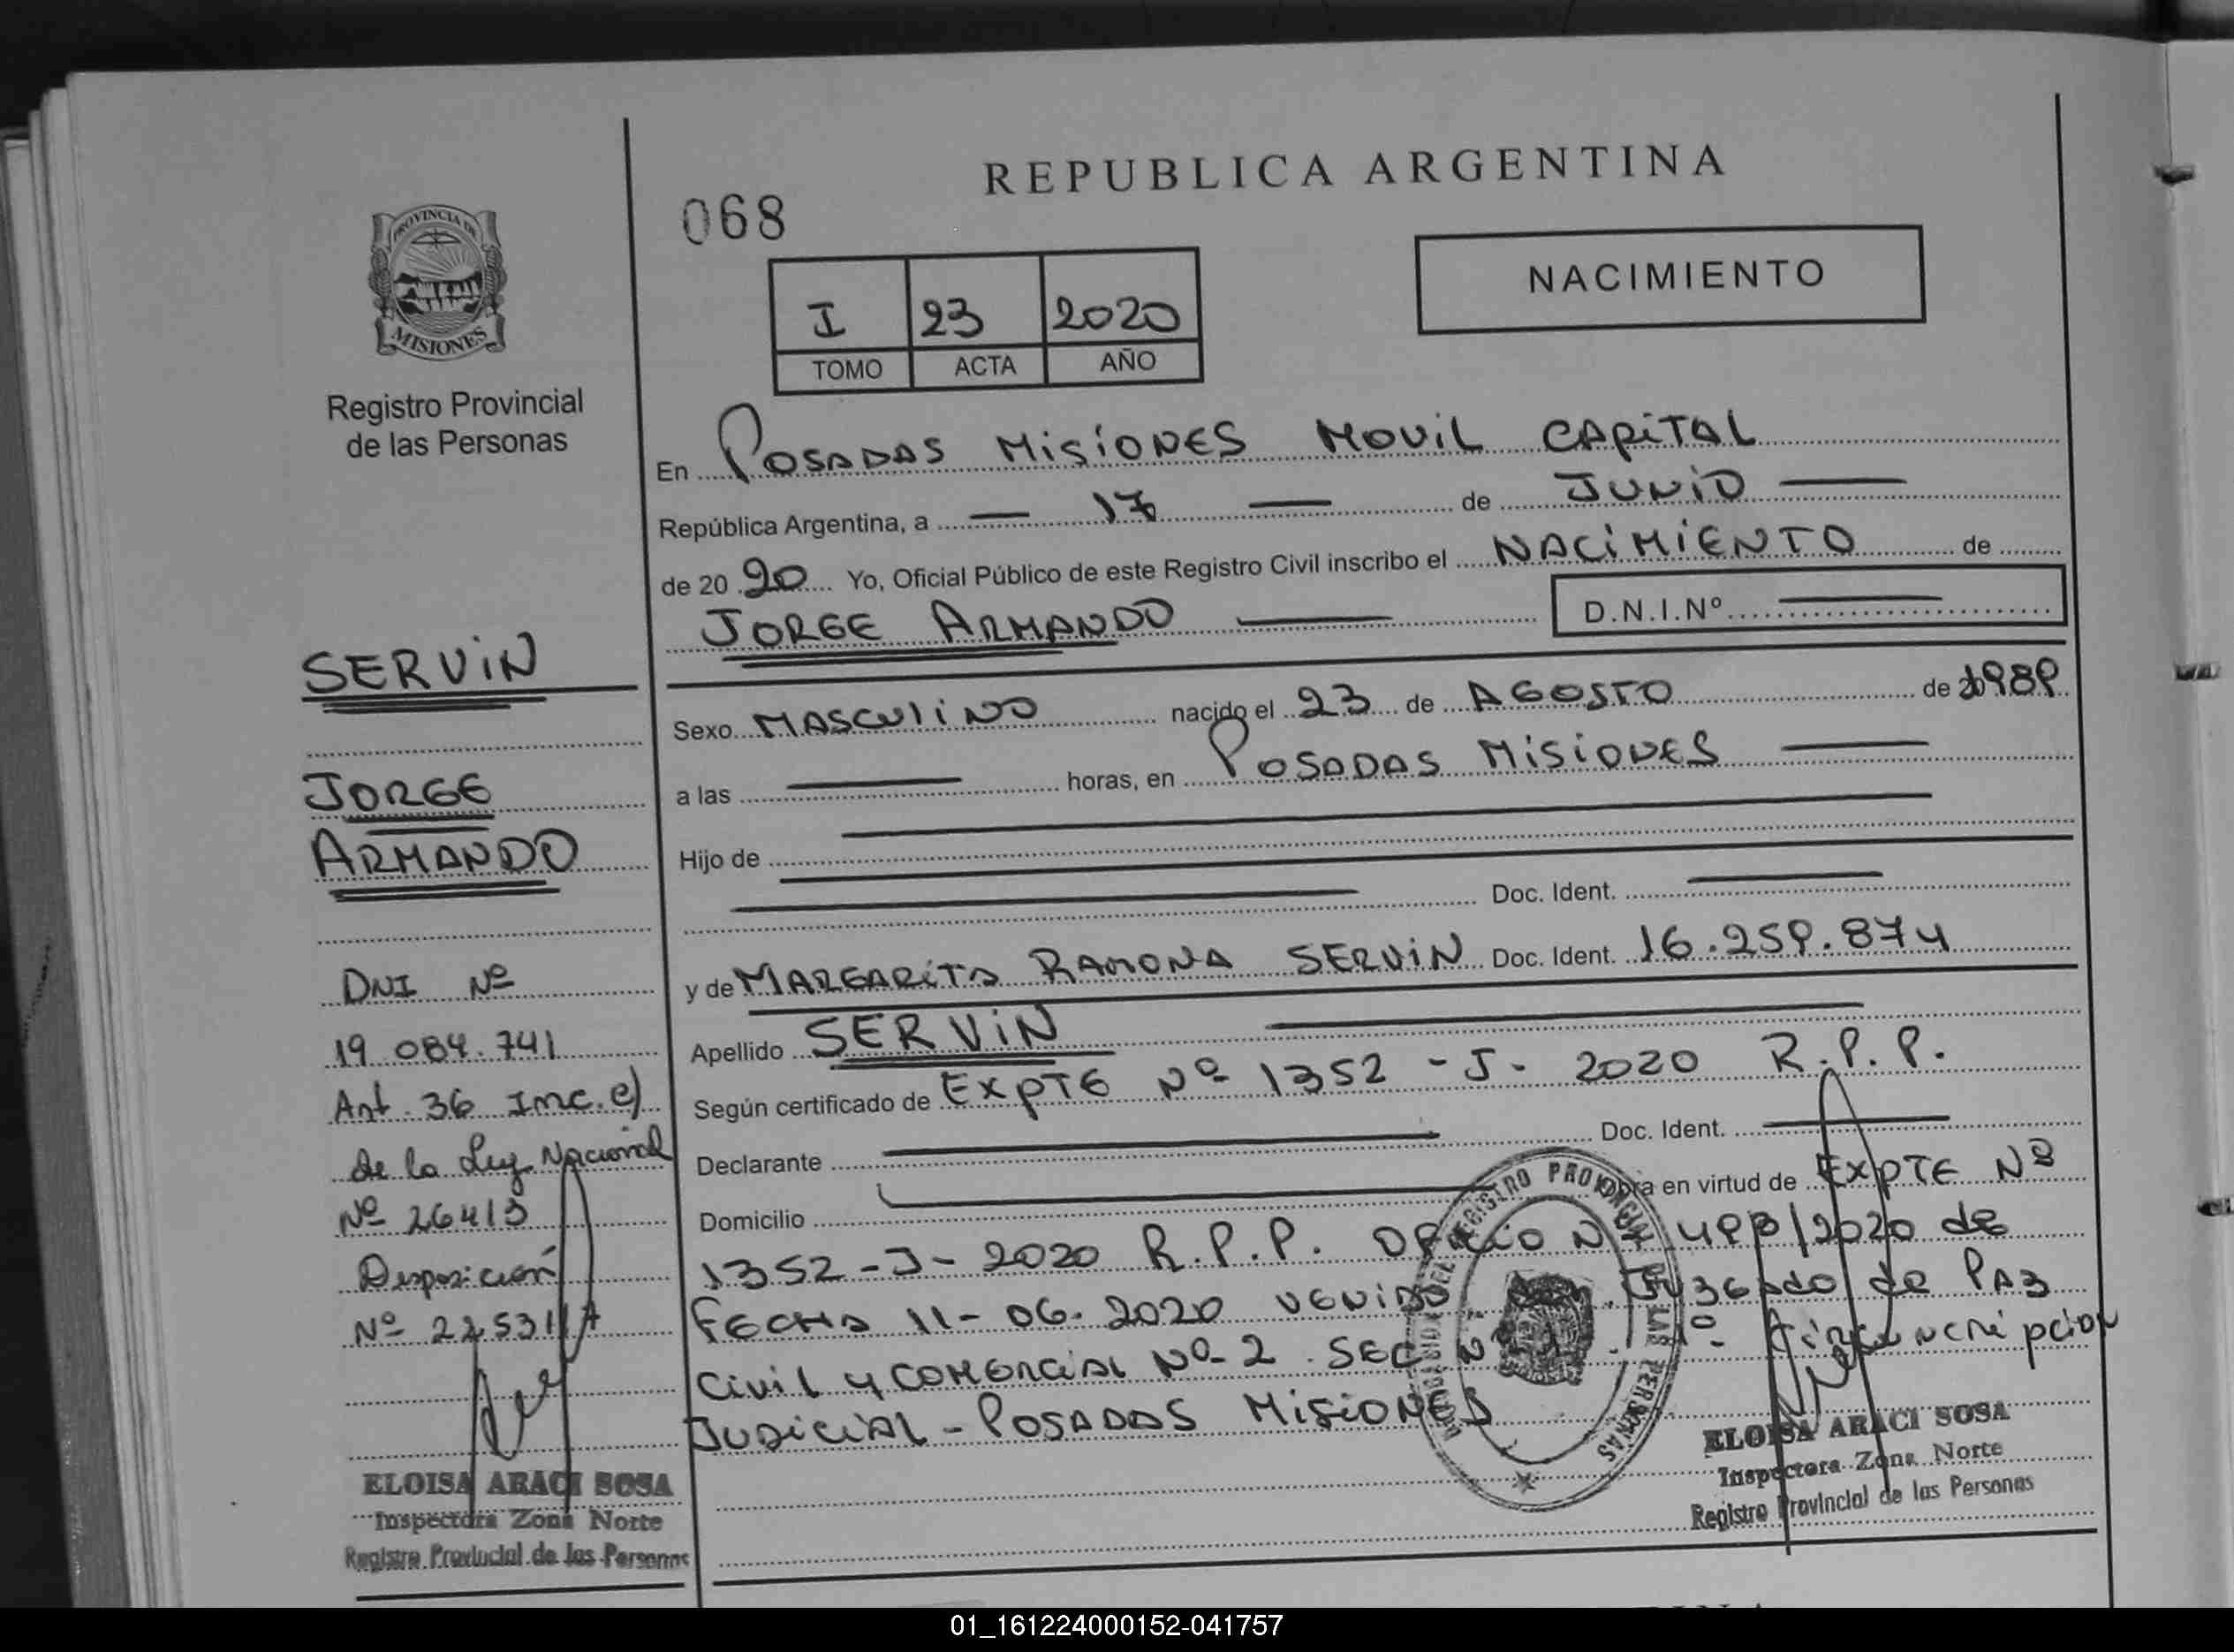 REPUBLICA ARGENTINA
068
NACIMIENTO
I 23 2020
TOMO ACTA AÑO
PROVINCIA DE
MISIONES
Registro Provincial
de las Personas
En POSADAS MISIONES MOVIL CAPITAL
República Argentina, a — 17 — de JUNIO —
de 20 20 Yo, Oficial Público de este Registro Civil inscribo el NACIMIENTO de
JORGE ARMANDO — D.N.I.Nº —
Sexo MASCULINO nacido el 23 de AGOSTO de 1989
a las — horas, en POSADAS MISIONES —
Hijo de
Doc. Ident. —
y de MARGARITA RAMONA SERVIN Doc. Ident. 16.259.874
Apellido SERVIN
Según certificado de EXPTE Nº 1352 - J - 2020 R.P.P.
Declarante — Doc. Ident. —
Domicilio — Obra en virtud de EXPTE Nº
1352 - J - 2020 R.P.P. OFICIO Nº /2020 de
FECHA 11-06-2020 VENIDO JUZGADO de PAZ
Civil y COMERCIAL Nº 2 SEC Nº 1º CIRCUNCRIPCION
JUDICIAL - POSADAS MISIONES
ELOISA ARACI SOSA
Inspectora Zona Norte
Registro Provincial de las Personas
SERVIN
JORGE
ARMANDO
DNI Nº
19.084.741
Art. 36 Inc. e)
de la Ley Nacional
Nº 26413
Disposición
Nº 2253/17
ELOISA ARACI SOSA
Inspectora Zona Norte
Registro Provincial de las Personas
01_161224000152-041757